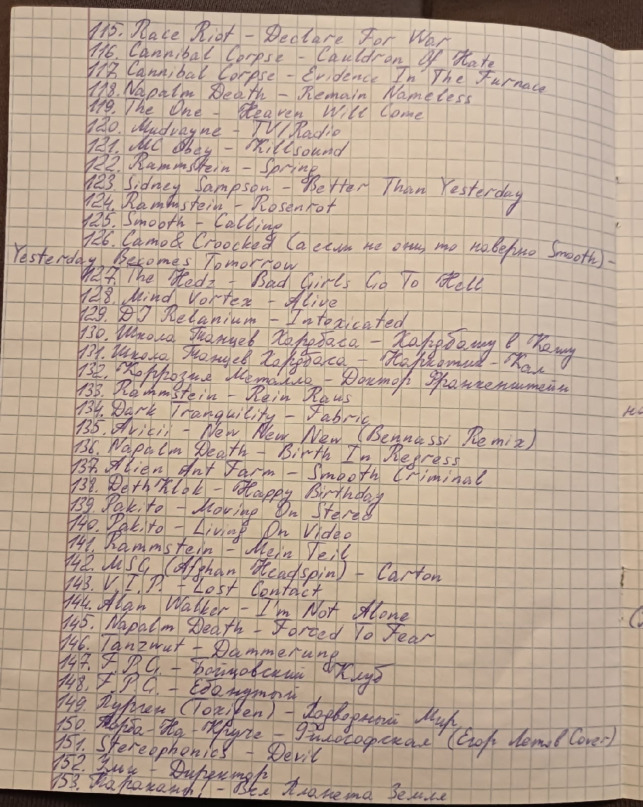 115. Race Riot - Declare For War
116. Cannibal Corpse - Cauldron Of Hate
117. Cannibal Corpse - Evidence In The Furnace
118. Napalm Death - Remain Nameless
119. The One - Heaven Will Come
120. Mudvayne - TV/Radio
121. MC Obey - Killsound
122. Rammstein - Spring
123. Sidney Sampson - Better Than Yesterday
124. Rammstein - Rosenrot
125. Smooth - Calling
126. Camo & Croocked (а если не они, то наверно Smooth) -
Yesterday Becomes Tomorrow
127. The Hedz - Bad Girls Go To Hell
128. Mind Vortex - Alive
129. DJ Relanium - Intoxicated
130. Школа Танцев Хардбаса - Хардбашу в Кашу
131. Школа Танцев Хардбаса - Наркотик - Кал
132. Коррозия Металла - Доктор Франкенштейн
133. Rammstein - Rein Raus
134. Dark Tranquility - Fabric
135. Avicii - New New New (Bennassi Remix)
136. Napalm Death - Birth In Regress
137. Alien Ant Farm - Smooth Criminal
138. DethKlok - Happy Birthday
139. Pakito - Moving On Stereo
140. Pakito - Living On Video
141. Rammstein - Mein Teil
142. MSG (Afghan Headspin) - Carton
143. V.I.P. - Lost Contact
144. Alan Walker - I'm Not Alone
145. Napalm Death - Forced To Fear
146. Tanzwut - Dammerung
147. F.P.G. - Бойцовский Клуб
148. F.P.G. - Ебанутый
149. Пурген (Toxigen) - Подводный Мир
150. Торба-На-Круче - Философская (Егор Летов Cover)
151. Stereophonics - Devil
152. Элли - Директор
153. Тараканы! - Вся Планета Земля